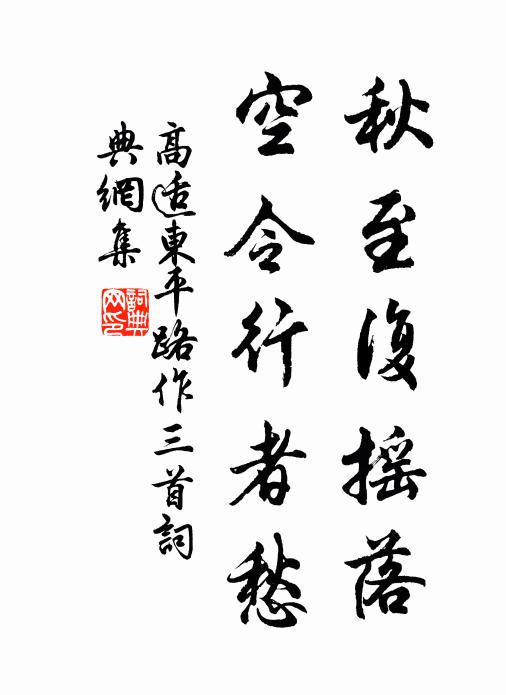 秋至復摇落
空令行者愁
高適東平路作三首詞
典網集
詞典网印